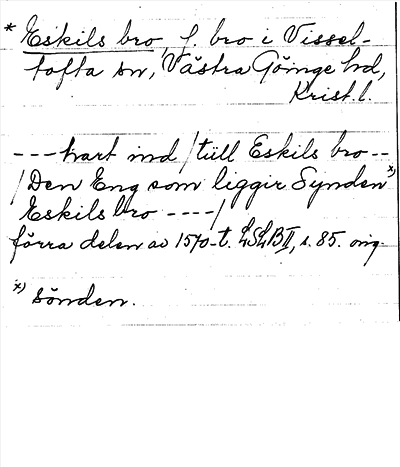 * Eskils bro, f. bro i Vissel-
tofta sn, Västra Göinge hd,
Krist. l.
---hart ind / till Eskils bro--
/ Den Eng som liggir Synden x)
Eskils bro ----/
förra delen av 1570-t. LSLB II, s. 85. orig.
x) sönden.